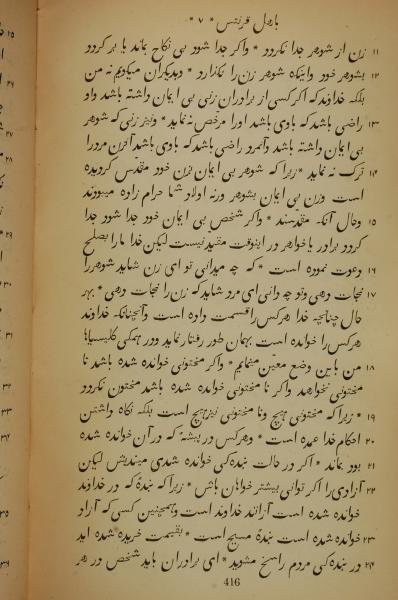 باهل قرنتس * ۷ *
۱۱ زن از شوهر جدا نکردد * واکر جدا شود بی نکاح بماند یا بر کردد
۱۲ بشوهر خود واینکه شوهر زن را نکذارد * ودیکران میکویم نه من
بلکه خداوند که اکر کسی از برادران زنی بی ایمان داشته باشد واو
۱۳ راضی باشد که باوی باشد اورا مرخص نه نماید * ونیز زنی که شوهر
بی ایمان داشته باشد وآنمرد راضی باشد که باوی باشد آنزن مردرا
۱۴ ترک نه نماید * زیرا که شوهر بی ایمان بزن خود مقدس کردیده
است وزن بی ایمان بشوهر ورنه اولاد شما حرام زاده میبودند
۱۵ وحال آنکه مقدسند * واکر شخص بی ایمان خود جدا شود جدا
کردد برادر یا خواهر در اینوقت مقید نیست لیکن خدا مارا بصلح
۱۶ دعوت نموده است * که چه میدانی تو ای زن شاید شوهررا
۱۷ نجات دهی وتو چه دانی ای مرد شاید که زن را نجات دهی * بهر
حال چنانچه خدا هرکس را قسمت داده است وآنچنانکه خداوند
هرکس را خوانده است بهمان طور رفتار نماید ودر همکی کلیسیاها
۱۸ من باین وضع معین مینمایم * واکر مختونی خوانده شده باشد نا
مختونی نخواهد واکر نا مختونی خوانده شده باشد مختون نکردد
۱۹ * زیرا که مختونی هیچ ونا مختونی نیز هیچ است بلکه نکاه داشتن
۲۰ احکام خدا عمده است * وهرکس در پیشه که در آن خوانده شده
۲۱ بود بماند * اکر در حالت بنده کی خوانده شدی میندیش لیکن
۲۲ آزادی را اکر توانی بیشتر خواهان باش * زیرا که بندۀ که در خداوند
خوانده شده است آزاد خداوند است وهمچنین کسی که آزاد
۲۳ خوانده شده است بندۀ مسیح است * بقیمت خریده شده اید
۲۴ در بنده کی مردم راسخ مشوید * ای برادران باید شخص در هر
416